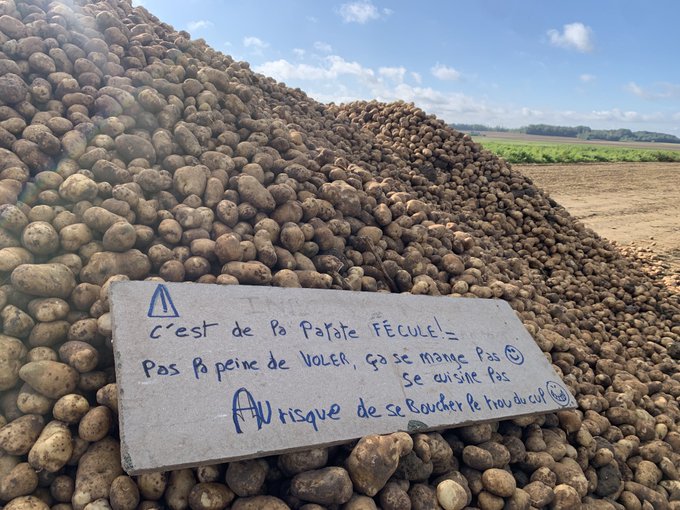 ⚠ c'est de la patate FÉCULE! =
pas la peine de VOLER, ça se mange pas ☺
se cuisine pas
Au risque de se Boucher le trou du cul ☺